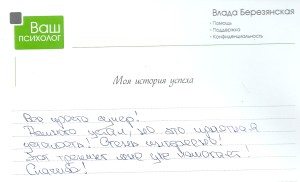 Ваш
психолог
Влада Березянская
• Помощь
• Поддержка
• Конфиденциальность
Моя история успеха
Все просто супер!
Немного устал, но это приятная
усталость! Очень интересно!
Этот тренинг мне уже помогает!
Спасибо!